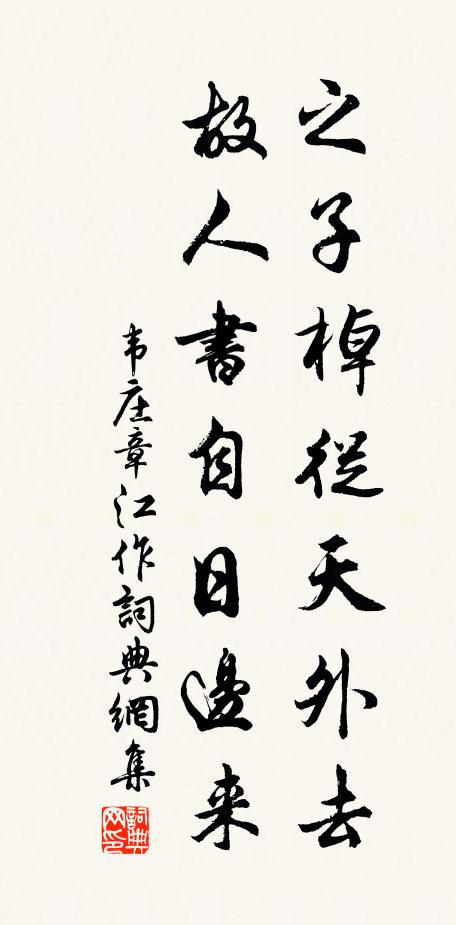 之子棹從天外去
故人書自日邊来
韦庄章江作詞典網集
詞典网印